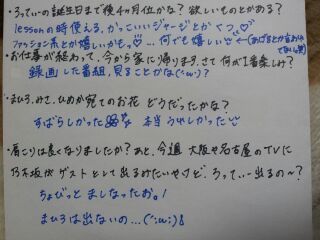 ・ろってぃーの誕生日まで残4ヶ月位かな？欲しいものとかある？
lessonの時使える、かっこいいジャージとかくつ♡
ファッション系とか嬉しいかも♡…何でも嬉しい
・お仕事が終わって、今から家に帰ります。さて何が1番楽しみ？
録画した番組、見ることかな(^ω^)
・まひろ、みさ、ひめか宛てのお花 どうだったかな？
すばらしかった 本当うれしかった
・肩こりは良くなりましたか？あと、今週 大阪や名古屋のTVに
乃木坂がゲストとして出るみたいやけど、ろってぃー出るの〜？
ちょびっと ましなったお。！
まひろは出ないの…(^;ω;)